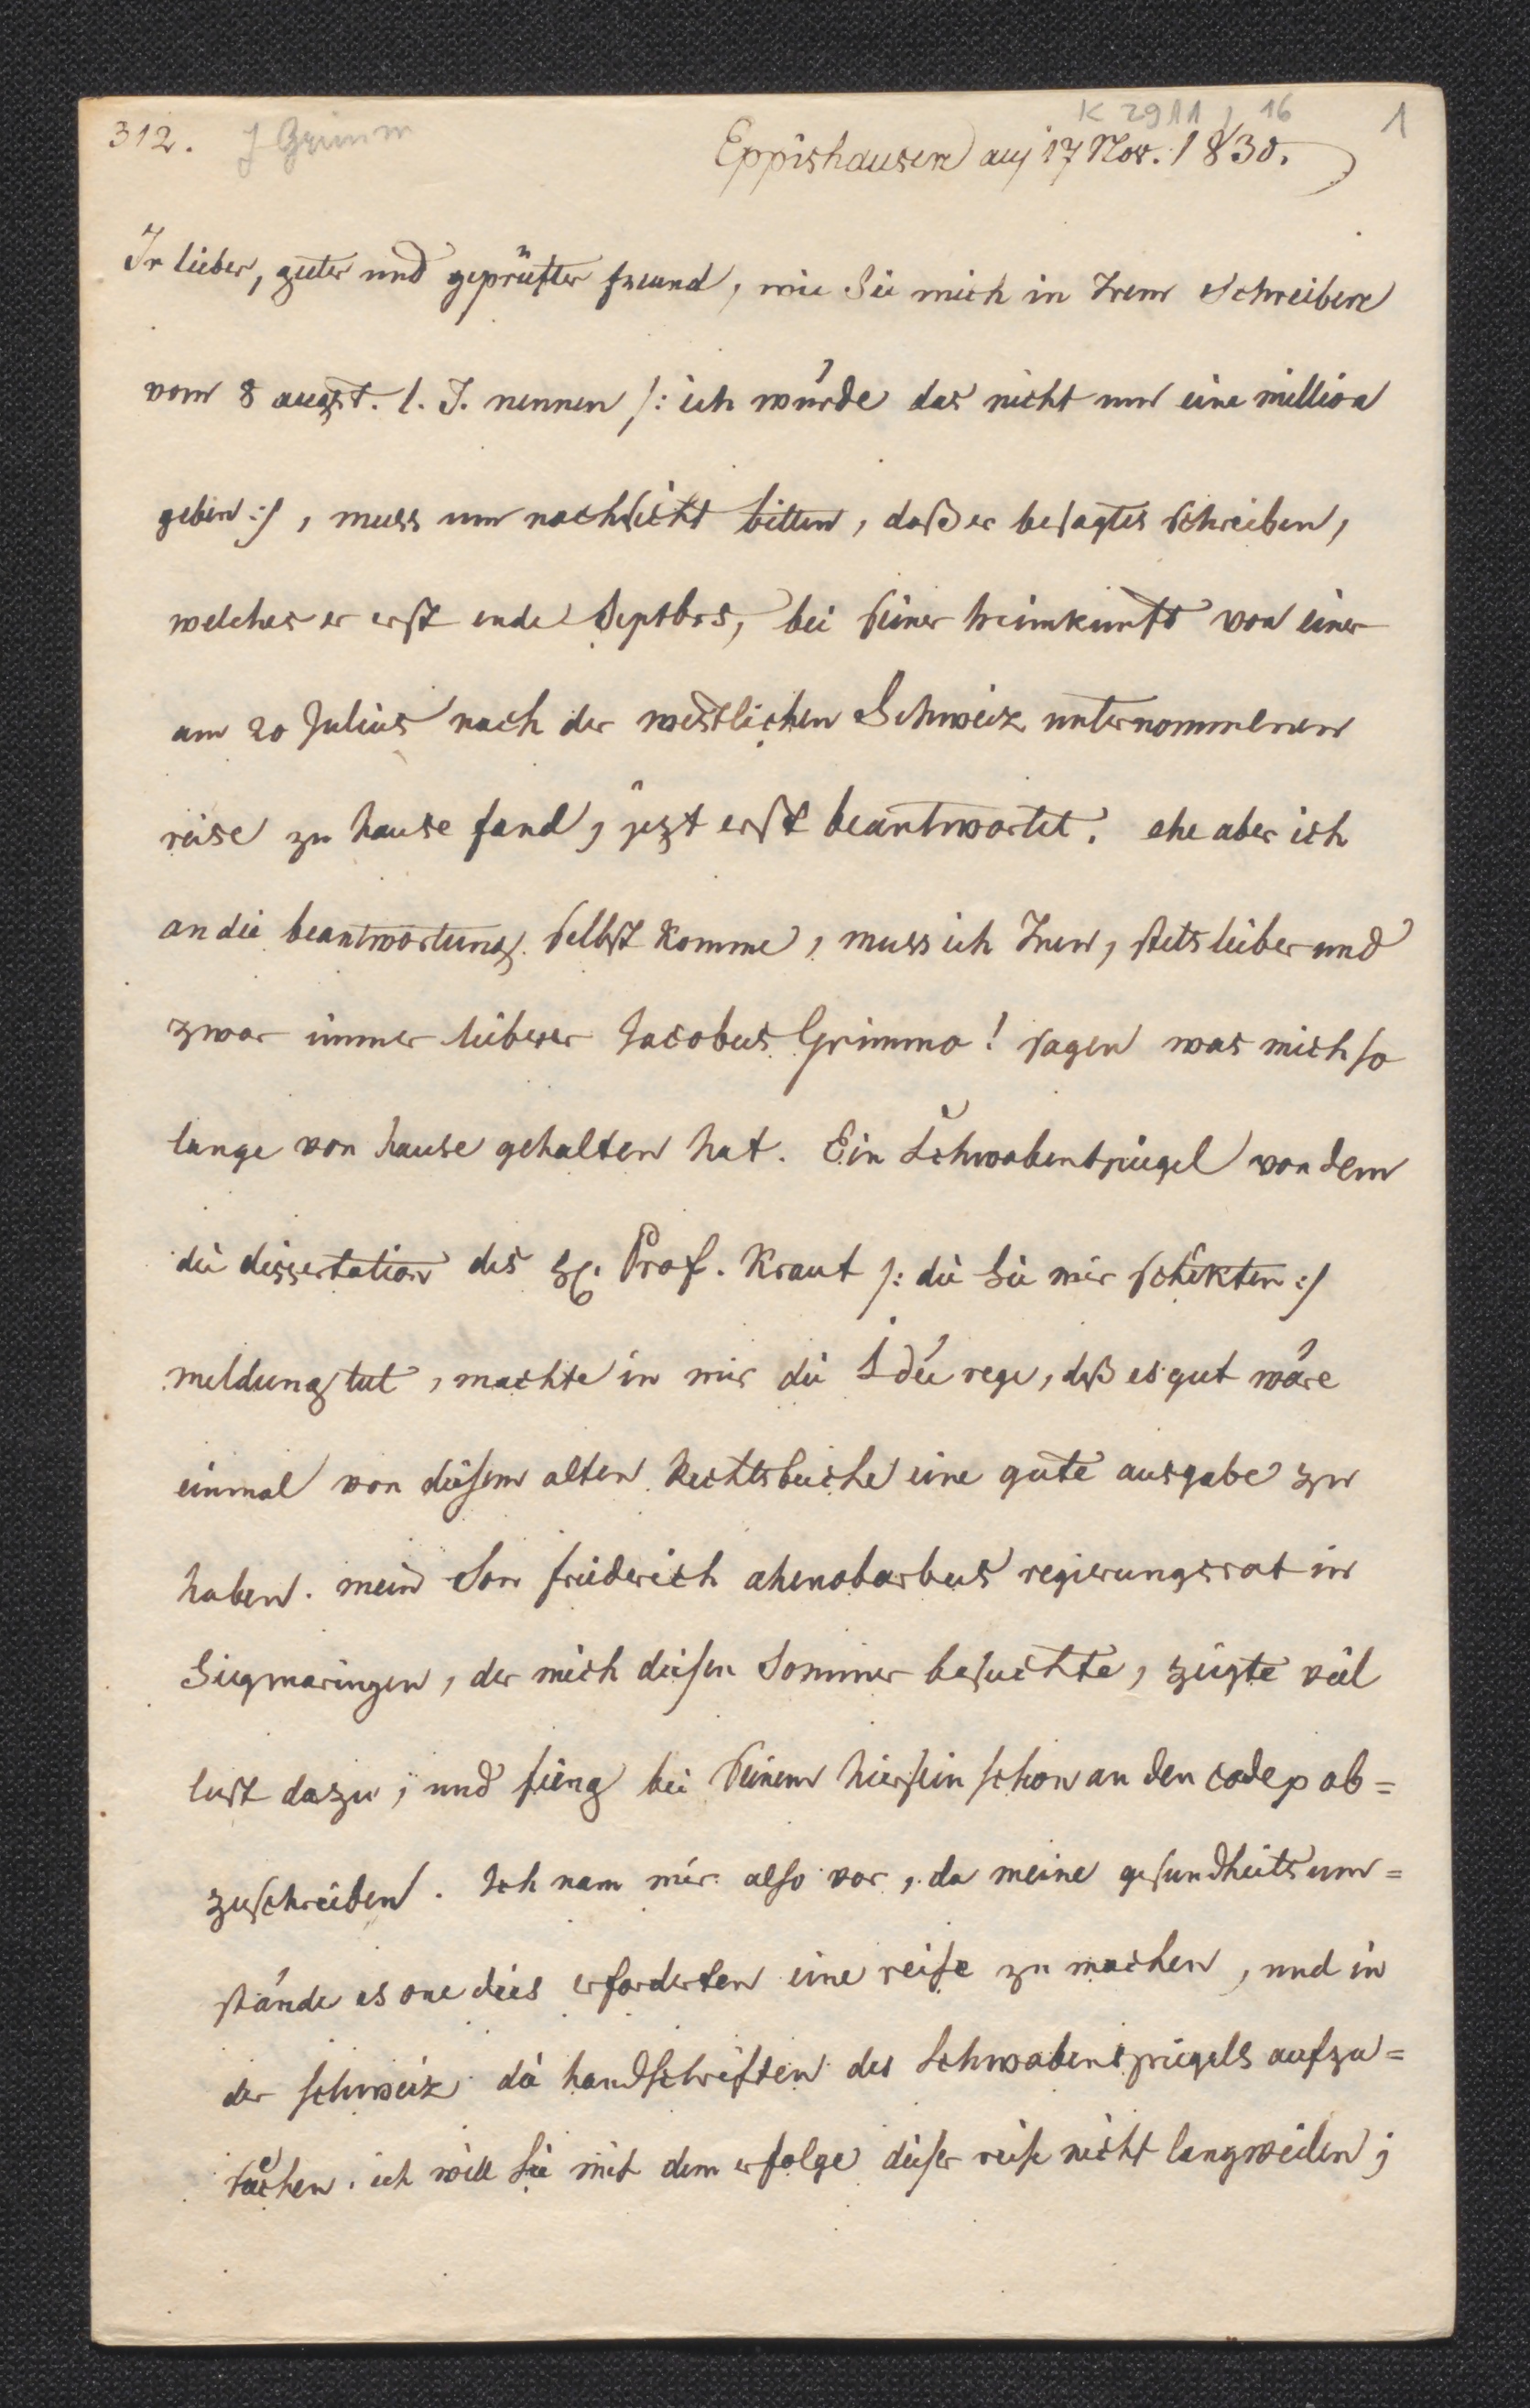 312. J Grimm K 2911, 16 1
Eppishausen auf 17 Nov. 1830.
Ir lieber, guter und geprüfter freund, wie Sie mich in Irem Schreiben
vom 8 augst. l. J. nennen /: ich würde das nicht um eine million
geben :/, muss um nachsicht bitten, daß er besagtes schreiben,
welches er erst ende Septbrs, bei seiner heimkunft von einer
am 20 Julius nach der westlichen Schweiz unternommenen
reise zu hause fand, jezt erst beantwortet. ehe aber ich
an die beantwortung selbst komme, muss ich Inen, stets lieber und
zwar immer lieberer Jacobus Grimmo! sagen was mich so
lange von hause gehalten hat. Ein Schwabenspiegel von dem
die dissertation des H. Prof. Kraut /: die Sie mir schikten :/
meldung tut, machte in mir die Idée rege, daß es gut wäre
einmal von diesem alten Rechtsbuche eine gute ausgabe zu
haben. mein Son friederich ahenobarbus regierungsrat in
Siegmaringen, der mich diesen Sommer besuchte, zeigte viel
lust dazu, und fieng bei seinem hiersein schon an den codex ab=
zuschreiben. Ich nam mir also vor, da meine gesundheitsum=
stände es one dies erforderten eine reise zu machen, und in
der schweiz die handschriften des Schwabenspiegels aufzu=
suchen. ich will Sie mit dem erfolge dieser reise nicht langweilen;